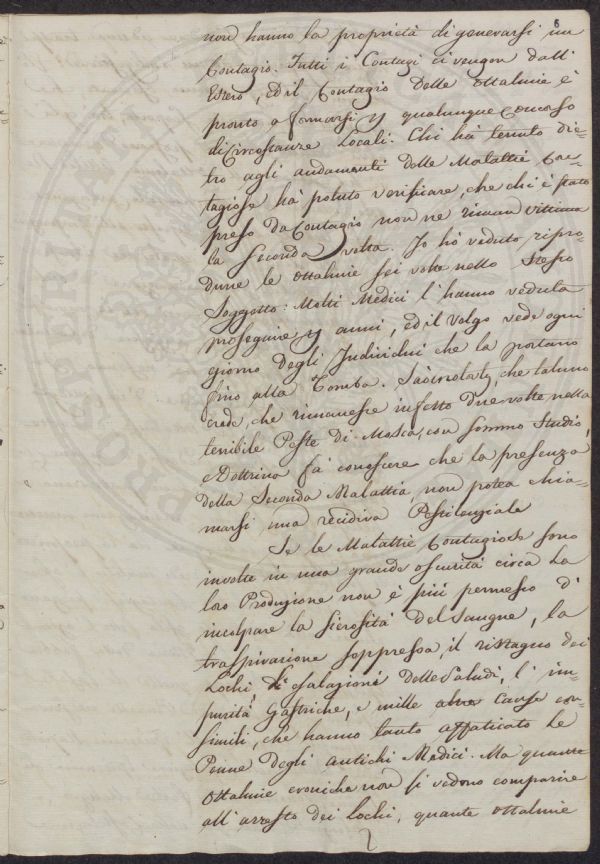 6
non hanno la proprietà di generarsi un
Contagio. Tutti i Contagi ci vengon dall'
Estero, ed il Contagio delle ottalmie è
pronto a formarsi qualunque concorso
di Circostanze Locali. Chi hà tenuto die=
tro agli andamenti delle Malattie Con=
tagiose hà potuto verificare, che chi è stato
preso da Contagio non ne riman vittima
la seconda volta. Io hò veduto ripro=
durre le ottalmie sei volte nello stesso
Soggetto: Molti Medici l'hanno veduta
proseguire anni, ed il Volgo vede ogni
giorno degli Individui che la portano
fino alla Tomba. che taluno
crede, che rimanesse infetto due volte nella
terribile Peste di Mosca, con sommo studio,
e Dottrina fà conoscere che la presenza
della Seconda Malattia non potea chia=
marsi una recidiva Pestilenziale
Se le Malattie Contagiose sono
involte in una grande oscurità circa la
loro Produzione non è più permesso d'
incolpare la sierosità del sangue, la
traspirazione soppressa, il ristagno dei
Lochi, esalazioni delle Paludi, l'im=
purità Gastriche, e mille altre cause con=
simili, che hanno tanto affaticato le
Penne degli antichi Medici. Ma quante
ottalmie croniche non si vedono comparire
all'arresto dei Lochi, quante ottalmie